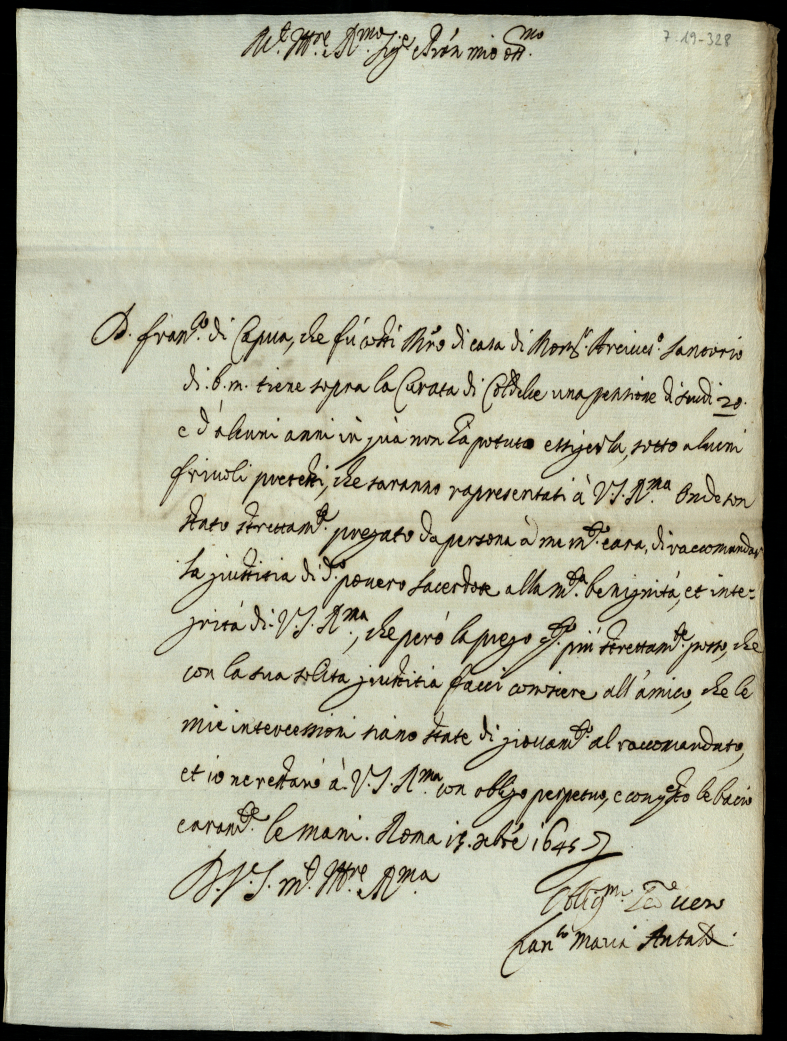 7-19-328
Mt. Ill.re R.mo Sig.re Pron mio oss.mo
D. Fran.co di Capua, che fù costì M.ro di casa di Mons.r Arciues.o Sanovrio
di b. m. tiene sopra la Curata di una pensione di scudi 20.
e d'alcuni anni in quà non hà potuto essigerla, sotto alcuni
friuoli pretesti, che saranno rapresentati à V. S. R.ma Onde son
stato strettam.te pregato da persona à me m.to cara, di raccomandar
la giustitia di d.o pouero sacerdote alla m.ta benignità, et inte=
grità di V. S. R.ma, che però la prego q.to più strettam.te posso, che
con la sua solita giustitia facci conoscere all'amico, che le
mie intercessioni siano state di giouam.to al raccomandato,
et io ne restarò à V. S. R.ma con obligo perpetuo, e con q.sto le bacio
caram.te le mani. Roma 13. xbre 1645
D. V. S. m.to Ill.re R.ma
Oblig.mo Se.re uero
Fran.co Maria Antald.